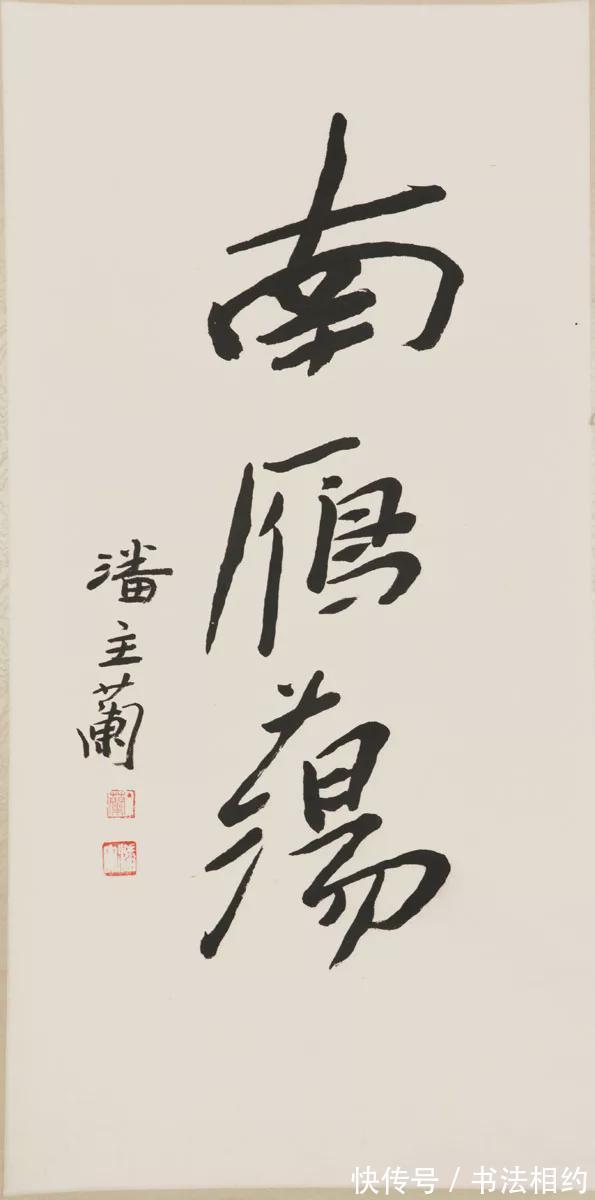 南雁蕩
潘主蘭
快传号 / 书法相约